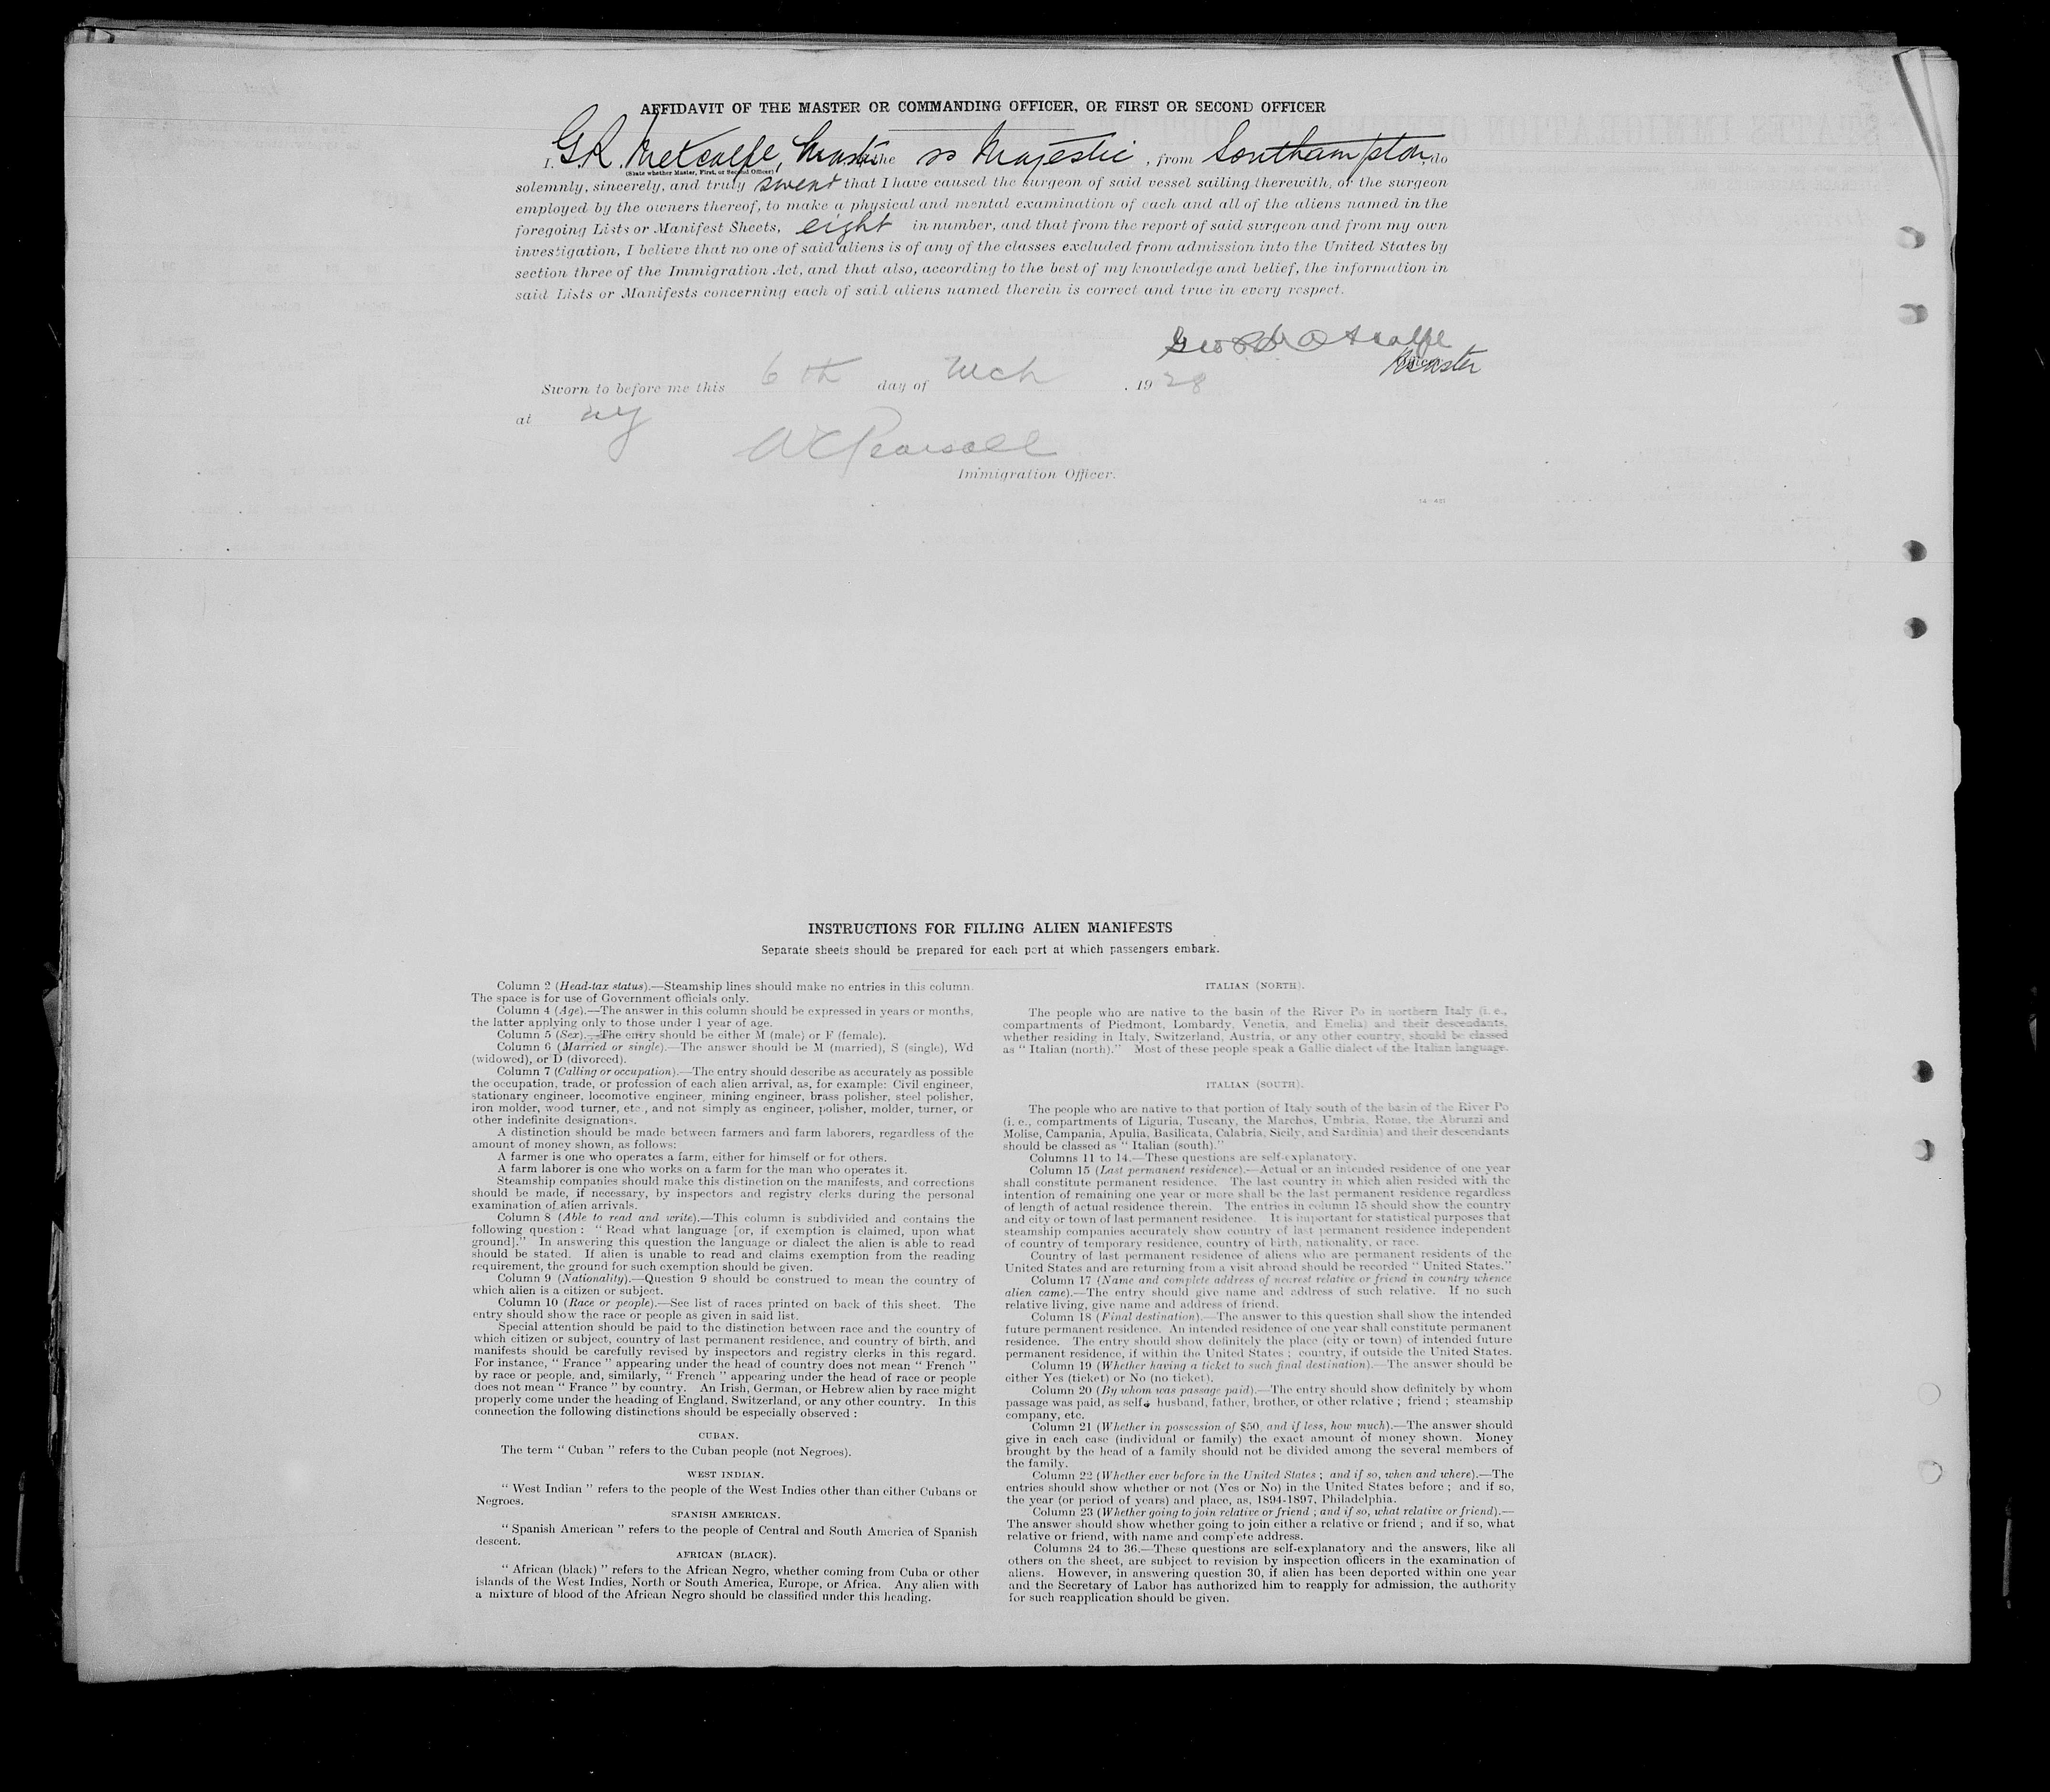 AFFIDAVIT OF THE MASTER OR COMMANDING OFFICER, OR FIRST OR SECOND OFFICER
I, G R Metcalfe, Master of the ss Majestic, from Southampton, do
(State whether Master, First, or Second Officer)
solemnly, sincerely, and truly swear that I have caused the surgeon of said vessel sailing therewith, or the surgeon
employed by the owners thereof, to make a physical and mental examination of each and all of the aliens named in the
foregoing Lists or Manifest Sheets, eight in number, and that from the report of said surgeon and from my own
investigation, I believe that no one of said aliens is of any of the classes excluded from admission into the United States by
section three of the Immigration Act, and that also, according to the best of my knowledge and belief, the information in
said Lists or Manifests concerning each of said aliens named therein is correct and true in every respect.
Geo R Metcalfe
Master
Officer.
Sworn to before me this 6th day of Mch, 1928
at NY
A C Pearsall
Immigration Officer.
INSTRUCTIONS FOR FILLING ALIEN MANIFESTS
Separate sheets should be prepared for each port at which passengers embark.
Column 2 (Head-tax status).—Steamship lines should make no entries in this column.
The space is for use of Government officials only.
Column 4 (Age).—The answer in this column should be expressed in years or months,
the latter applying only to those under 1 year of age.
Column 5 (Sex).—The entry should be either M (male) or F (female).
Column 6 (Married or single).—The answer should be M (married), S (single), Wd
(widowed), or D (divorced).
Column 7 (Calling or occupation).—The entry should describe as accurately as possible
the occupation, trade, or profession of each alien arrival, as, for example: Civil engineer,
stationary engineer, locomotive engineer, mining engineer, brass polisher, steel polisher,
iron molder, wood turner, etc., and not simply as engineer, polisher, molder, turner, or
other indefinite designations.
A distinction should be made between farmers and farm laborers, regardless of the
amount of money shown, as follows:
A farmer is one who operates a farm, either for himself or for others.
A farm laborer is one who works on a farm for the man who operates it.
Steamship companies should make this distinction on the manifests, and corrections
should be made, if necessary, by inspectors and registry clerks during the personal
examination of alien arrivals.
Column 8 (Able to read and write).—This column is subdivided and contains the
following question : " Read what language [or, if exemption is claimed, upon what
ground]." In answering this question the language or dialect the alien is able to read
should be stated. If alien is unable to read and claims exemption from the reading
requirement, the ground for such exemption should be given.
Column 9 (Nationality).—Question 9 should be construed to mean the country of
which alien is a citizen or subject.
Column 10 (Race or people).—See list of races printed on back of this sheet. The
entry should show the race or people as given in said list.
Special attention should be paid to the distinction between race and the country of
which citizen or subject, country of last permanent residence, and country of birth, and
manifests should be carefully revised by inspectors and registry clerks in this regard.
For instance, " France " appearing under the head of country does not mean " French "
by race or people, and, similarly, " French " appearing under the head of race or people
does not mean " France " by country. An Irish, German, or Hebrew alien by race might
properly come under the heading of England, Switzerland, or any other country. In this
connection the following distinctions should be especially observed :
CUBAN.
The term " Cuban " refers to the Cuban people (not Negroes).
WEST INDIAN.
" West Indian " refers to the people of the West Indies other than either Cubans or
Negroes.
SPANISH AMERICAN.
" Spanish American " refers to the people of Central and South America of Spanish
descent.
AFRICAN (BLACK).
" African (black) " refers to the African Negro, whether coming from Cuba or other
islands of the West Indies, North or South America, Europe, or Africa. Any alien with
a mixture of blood of the African Negro should be classified under this heading.
ITALIAN (NORTH).
The people who are native to the basin of the River Po in northern Italy (i. e.,
compartments of Piedmont, Lombardy, Venetia, and Emelia) and their descendants,
whether residing in Italy, Switzerland, Austria, or any other country, should be classed
as " Italian (north)." Most of these people speak a Gallic dialect of the Italian language.
ITALIAN (SOUTH).
The people who are native to that portion of Italy south of the basin of the River Po
(i. e., compartments of Liguria, Tuscany, the Marches, Umbria, Rome, the Abruzzi and
Molise, Campania, Apulia, Basilicata, Calabria, Sicily, and Sardinia) and their descendants
should be classed as " Italian (south)."
Columns 11 to 14.—These questions are self-explanatory.
Column 15 (Last permanent residence).—Actual or an intended residence of one year
shall constitute permanent residence. The last country in which alien resided with the
intention of remaining one year or more shall be the last permanent residence regardless
of length of actual residence therein. The entries in column 15 should show the country
and city or town of last permanent residence. It is important for statistical purposes that
steamship companies accurately show country of last permanent residence independent
of country of temporary residence, country of birth, nationality, or race.
Country of last permanent residence of aliens who are permanent residents of the
United States and are returning from a visit abroad should be recorded " United States."
Column 17 (Name and complete address of nearest relative or friend in country whence
alien came).—The entry should give name and address of such relative. If no such
relative living, give name and address of friend.
Column 18 (Final destination).—The answer to this question shall show the intended
future permanent residence. An intended residence of one year shall constitute permanent
residence. The entry should show definitely the place (city or town) of intended future
permanent residence, if within the United States ; country, if outside the United States.
Column 19 (Whether having a ticket to such final destination).—The answer should be
either Yes (ticket) or No (no ticket).
Column 20 (By whom was passage paid).—The entry should show definitely by whom
passage was paid, as self, husband, father, brother, or other relative ; friend ; steamship
company, etc.
Column 21 (Whether in possession of $50, and if less, how much).—The answer should
give in each case (individual or family) the exact amount of money shown. Money
brought by the head of a family should not be divided among the several members of
the family.
Column 22 (Whether ever before in the United States ; and if so, when and where).—The
entries should show whether or not (Yes or No) in the United States before ; and if so,
the year (or period of years) and place, as, 1894-1897, Philadelphia.
Column 23 (Whether going to join relative or friend ; and if so, what relative or friend).—
The answer should show whether going to join either a relative or friend ; and if so, what
relative or friend, with name and complete address.
Columns 24 to 36.—These questions are self-explanatory and the answers, like all
others on the sheet, are subject to revision by inspection officers in the examination of
aliens. However, in answering question 30, if alien has been deported within one year
and the Secretary of Labor has authorized him to reapply for admission, the authority
for such reapplication should be given.